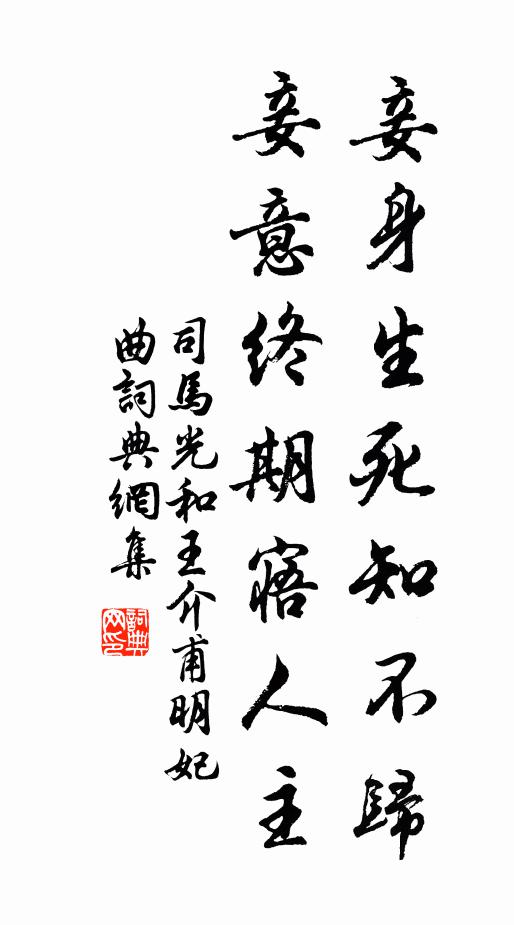 妾身生死知不歸
妾意終期寤人主
司馬光和王介甫明妃
曲詞典網集
詞典網印